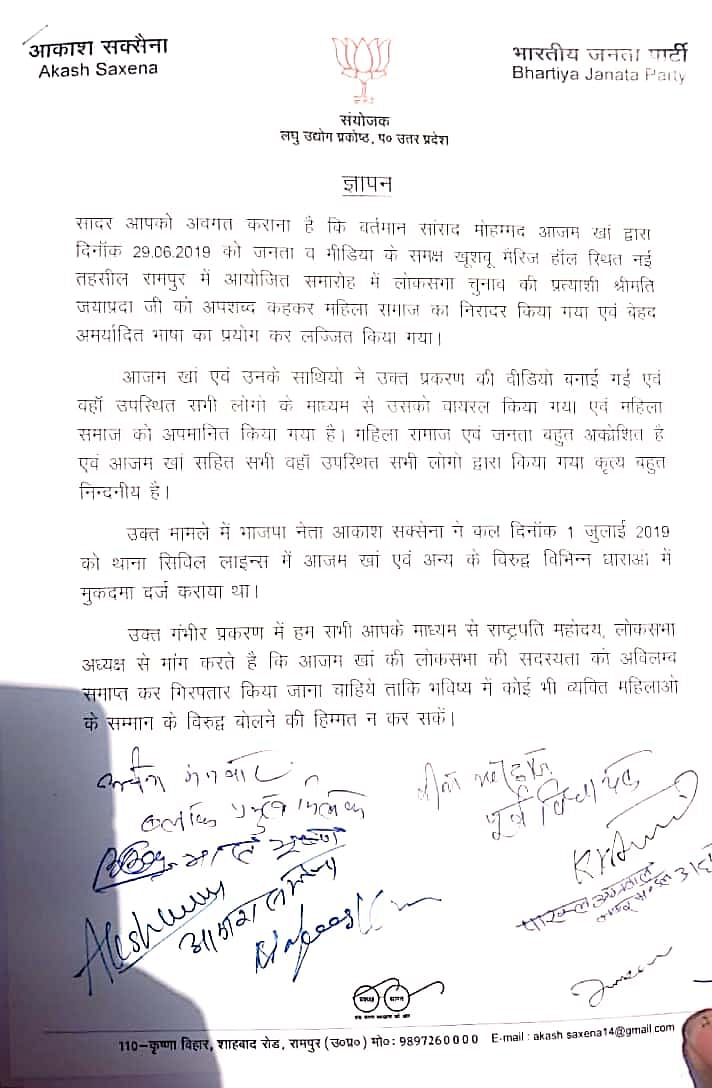 आकाश सक्सैना
Akash Saxena
भारतीय जनता पार्टी
Bhartiya Janata Party
संयोजक
लघु उद्योग प्रकोष्ठ, प० उत्तर प्रदेश
ज्ञापन
सादर आपको अवगत कराना है कि वर्तमान सांसद मोहम्मद आजम खां द्वारा
दिनॉक 29.06.2019 को जनता व मीडिया के समक्ष खूशबू मैरिज हॉल स्थित नई
तहसील रामपुर में आयोजित समारोह में लोकसभा चुनाव की प्रत्याशी श्रीमति
जयाप्रदा जी को अपशब्द कहकर महिला समाज का निरादर किया गया एवं बेहद
अमर्यादित भाषा का प्रयोग कर लज्जित किया गया।
आजम खां एवं उनके साथियो ने उक्त प्रकरण की वीडियो बनाई गई एवं
वहॉ उपस्थित सभी लोगो के माध्यम से उसको वायरल किया गया एवं महिला
समाज को अपमानित किया गया है। महिला समाज एवं जनता बहुत अक्रोशित है
एवं आजम खां सहित सभी वहॉ उपस्थित सभी लोगो द्वारा किया गया कृत्य बहुत
निन्दनीय है।
उक्त मामले में भाजपा नेता आकाश सक्सेना ने कल दिनॉक 1 जुलाई 2019
को थाना सिविल लाइन्स में आजम खां एवं अन्य के विरुद्व विभिन्न धाराओ में
मुकदमा दर्ज कराया था।
उक्त गंभीर प्रकरण में हम सभी आपके माध्यम से राष्ट्रपति महोदय, लोकसभा
अध्यक्ष से मांग करते है कि आजम खां की लोकसभा की सदस्यता को अविलम्ब
समाप्त कर गिरपतार किया जाना चाहिये ताकि भविष्य में कोई भी व्यक्ति महिलाओ
के सम्मान के विरुद्व बोलने की हिम्मत न कर सकें।
ब्लॉक प्रमुख मिलक
पूर्व विधायक
भारत भूषण
Akash
आकाश सक्सेना
110–कृष्णा विहार, शाहबाद रोड, रामपुर (उ०प्र०) मो० : 9897260000 E-mail : akash saxena14@gmail.com